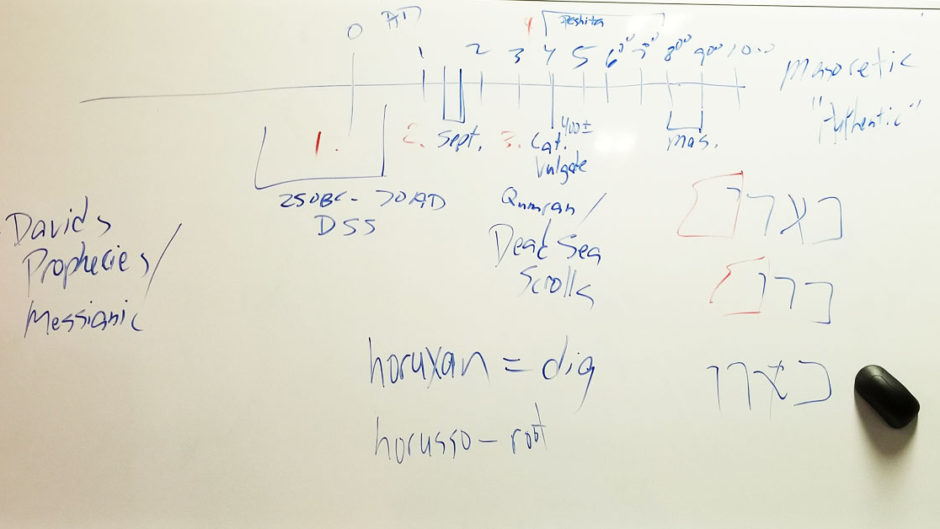 Peshitta
0 AD 1 2 3 4 5 6⁰⁰ 7⁰⁰ 8⁰⁰ 900 1000
Masoretic
"Authentic"
1. 2. Sept. 3. Lat. 400± Mas.
Vulgate
250BC - 70AD
DSS
Qumran /
Dead Sea
Scrolls
Davids
Prophecies /
Messianic
כארו
כרו
כארו
horuxan = dig
horusso - root